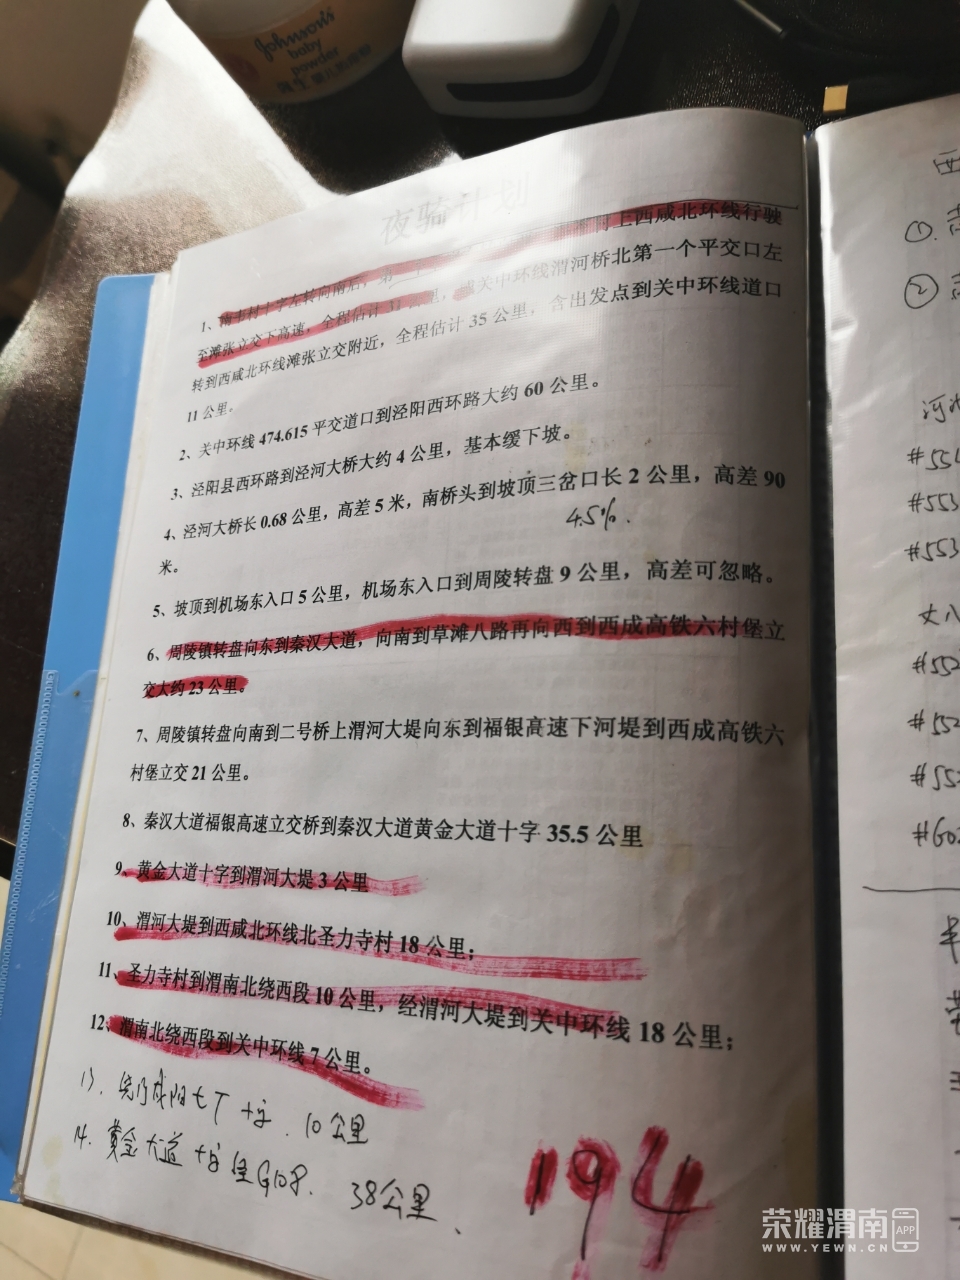 Johnson's
baby
powder
夜骑计划
上西咸北环线行驶
至滩张立交下高速，全程估计
关中环线渭河桥北第一个平交口左
转到西咸北环线滩张立交附近，全程估计 35 公里，含出发点到关中环线道口
11 公里。
2、关中环线 474.615 平交道口到泾阳西环路大约 60 公里。
3、泾阳县西环路到泾河大桥大约 4 公里，基本缓下坡。
4、泾河大桥长 0.68 公里，高差 5 米，南桥头到坡顶三岔口长 2 公里，高差 90
米。
4.5%.
5、坡顶到机场东入口 5 公里，机场东入口到周陵转盘 9 公里，高差可忽略。
6、周陵镇转盘向东到秦汉大道，向南到草滩八路再向西到西成高铁六村堡立
交大约 23 公里。
7、周陵镇转盘向南到二号桥上渭河大堤向东到福银高速下河堤到西成高铁六
村堡立交 21 公里。
8、秦汉大道福银高速立交桥到秦汉大道黄金大道十字 35.5 公里
9、黄金大道十字到渭河大堤 3 公里
10、渭河大堤到西咸北环线北圣力寺村 18 公里；
11、圣力寺村到渭南北绕西段 10 公里，经渭河大堤到关中环线 18 公里；
12、渭南北绕西段到关中环线 7 公里。
13. 咸阳七厂十字. 10公里
14. 黄金大道十字至G108. 38公里、
194
西
①.
②
#551
#553
#553
#552
#552
#55
#G0
荣耀渭南 APP
WWW.YEWN.CN